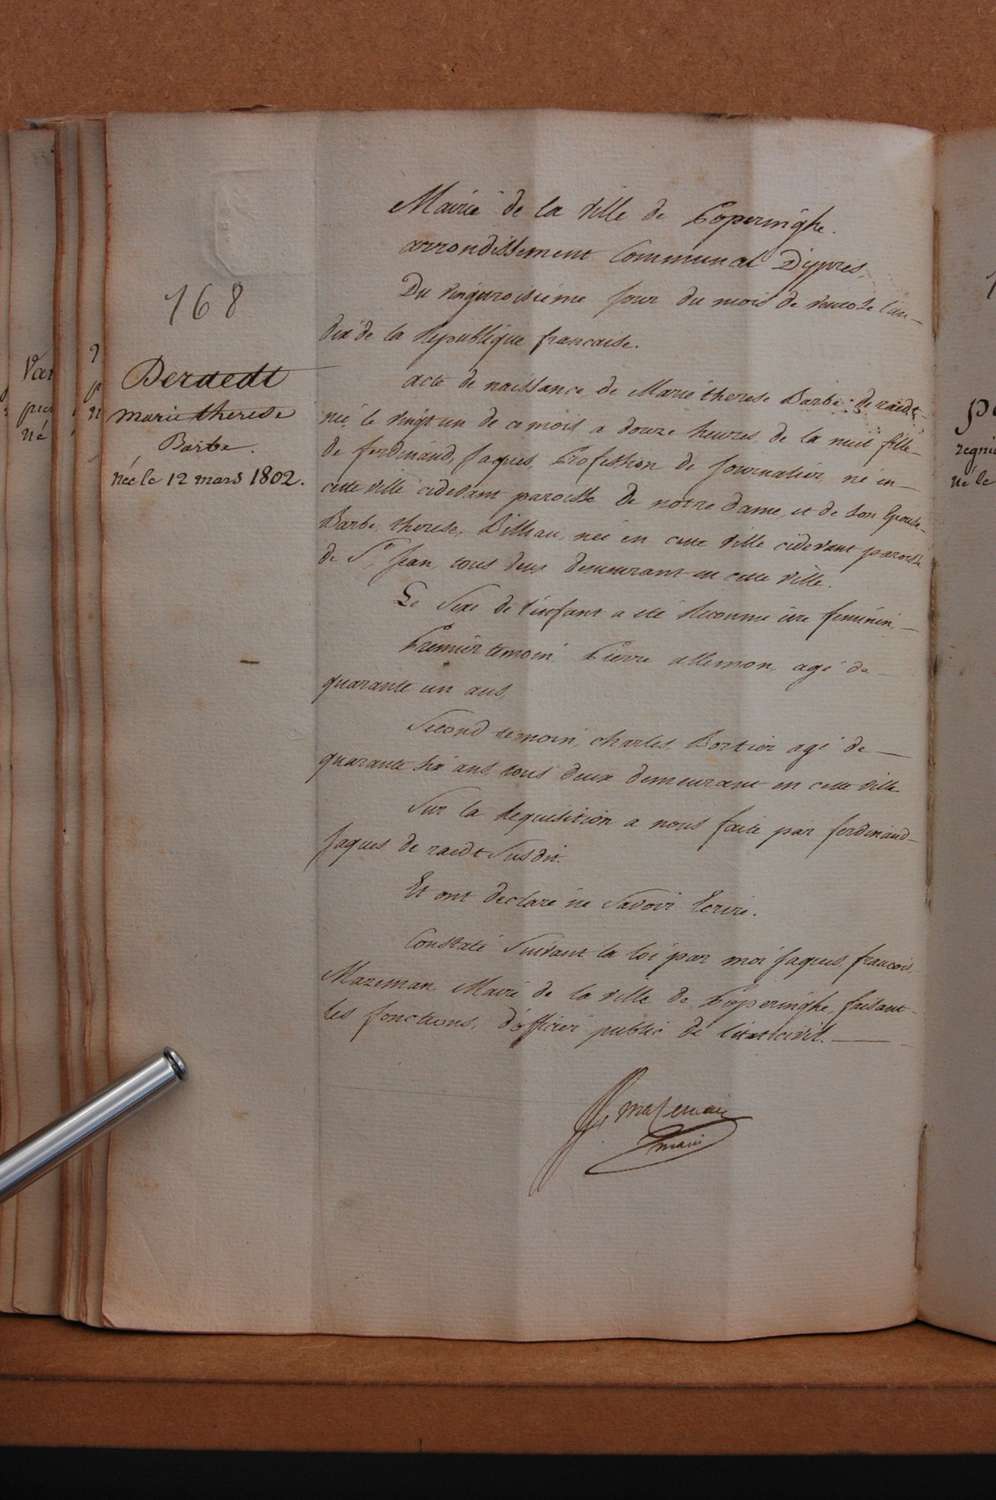 168
Deraedt
marie therese
Barbe.
née le 12 mars 1802.
Mairie de la Ville de Poperinghe.
arrondissement Communal D'ypres
Du vingtroisième jour du mois de ventose l'an
dix de la République francaise.
acte de naissance de Marie therese Barbe de raedt
née le vingt un de ce mois a douze heures de la nuit fille
de ferdinand Jaques, Profession de Journalier né en
cette ville cidevant paroisse de notre dame, et de son Epouse
Barbe, therese, née en cette ville cidevant paroisse
de St. Jean tous deux demeurant en cette ville.
Le Sexe de l'enfant a eté reconnu être feminin
Premier temoin Pierre allemon agé de
quarante un ans,
Second temoin, charles Bortier agé de
quarante six ans tous deux demeurant en cette ville
Sur la requisition a nous faite par ferdinand
Jaques de raedt Susdit.
Et ont declaré ne Savoir Ecrire.
Constaté Suivant la loi par moi Jaques, francois
Mazeman Maire de la ville de Poperinghe, faisant
les fonctions, d'officier public de l'etat civil.
mazeman
maire
Van
né
né le